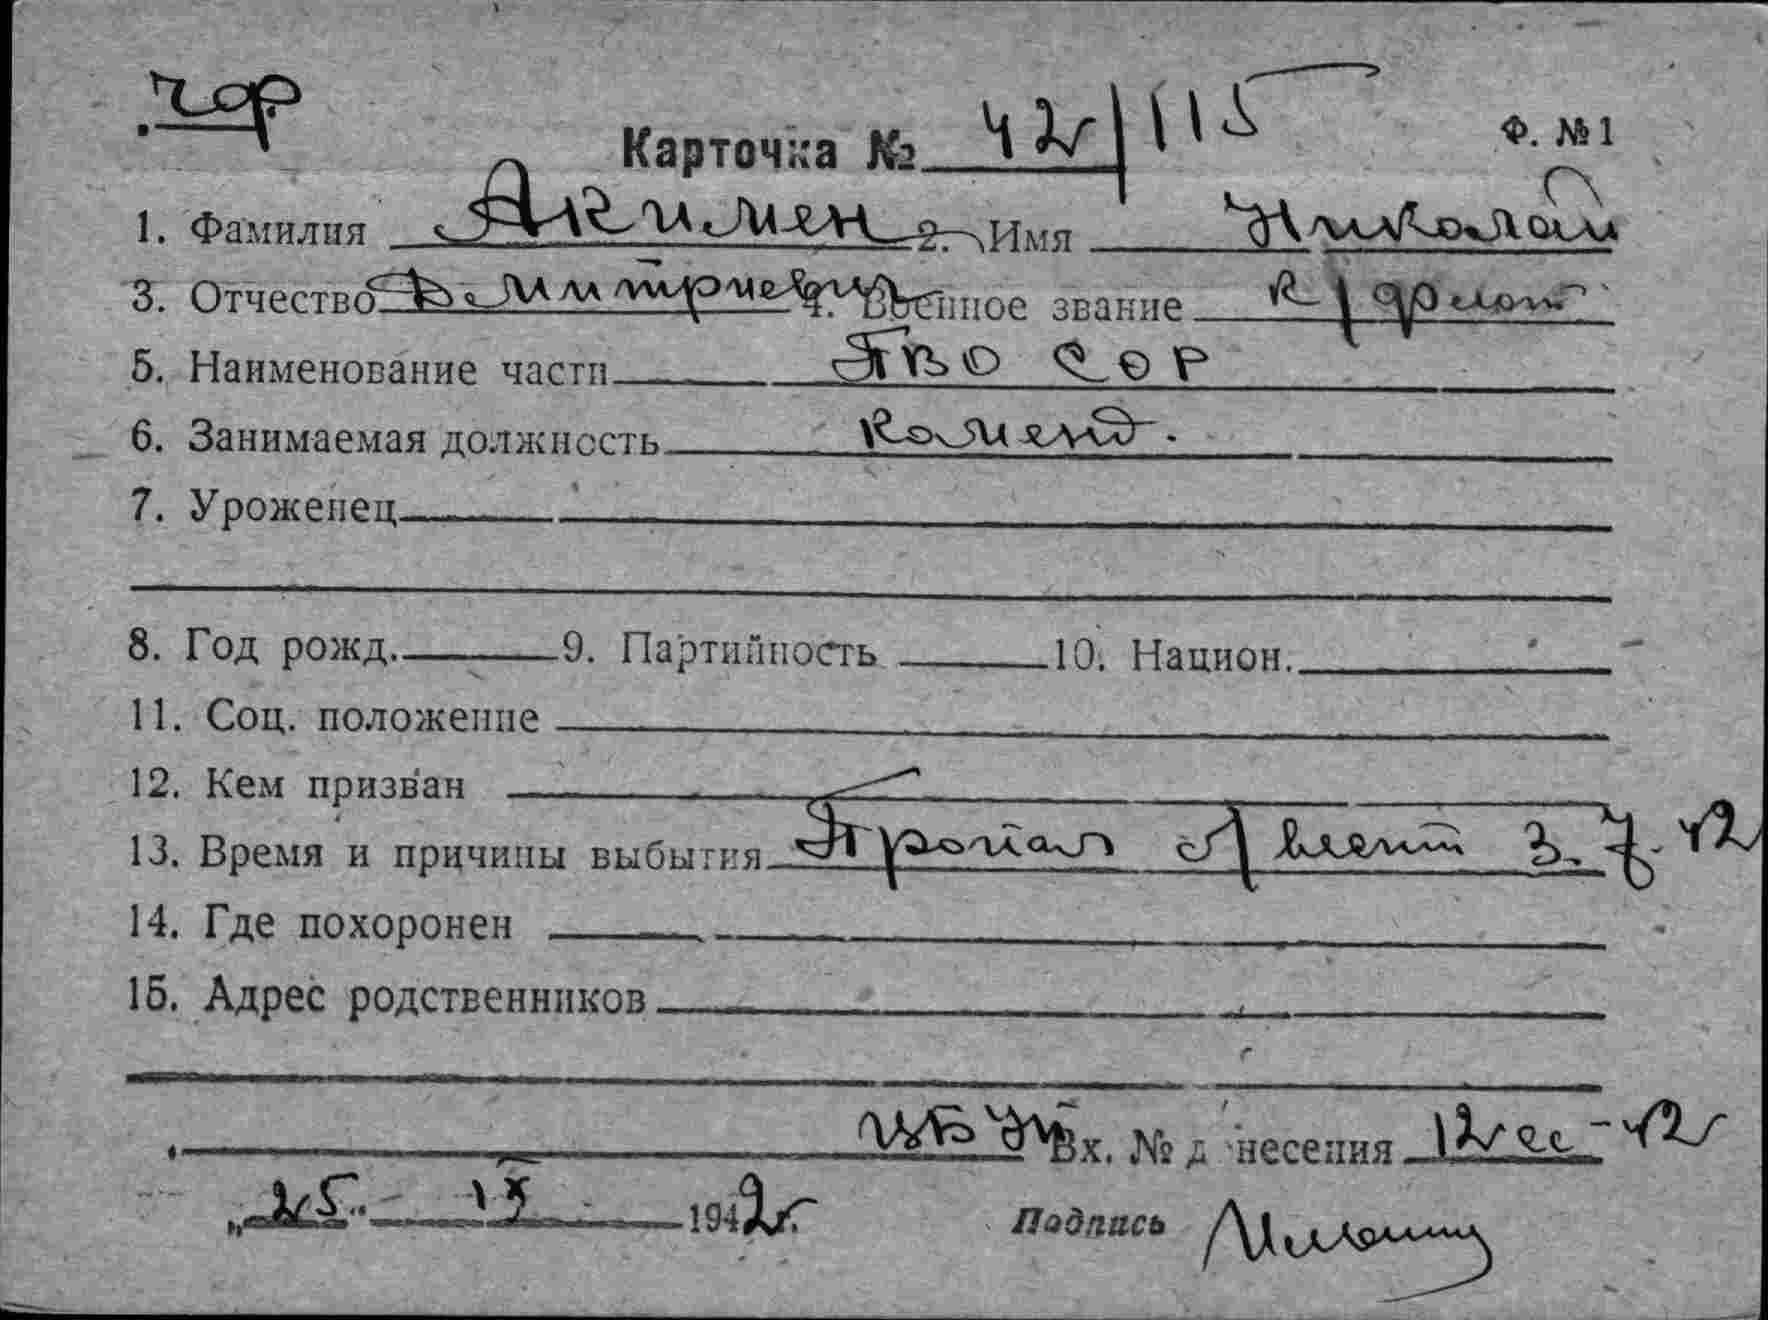 чор
Карточка № 42/115 Ф. № 1
1. Фамилия Акимен 2. Имя Николай
3. Отчество Дмитриевич 4. Военное звание к/флот
5. Наименование части ГВО СОР
6. Занимаемая должность коменд.
7. Уроженец
8. Год рожд. 9. Партийность 10. Национ.
11. Соц. положение
12. Кем призван
13. Время и причины выбытия Пропал б/вести 3.7.42
14. Где похоронен
15. Адрес родственников
Вх. № д несения 12сс-42
„25“ 1942г. Подпись